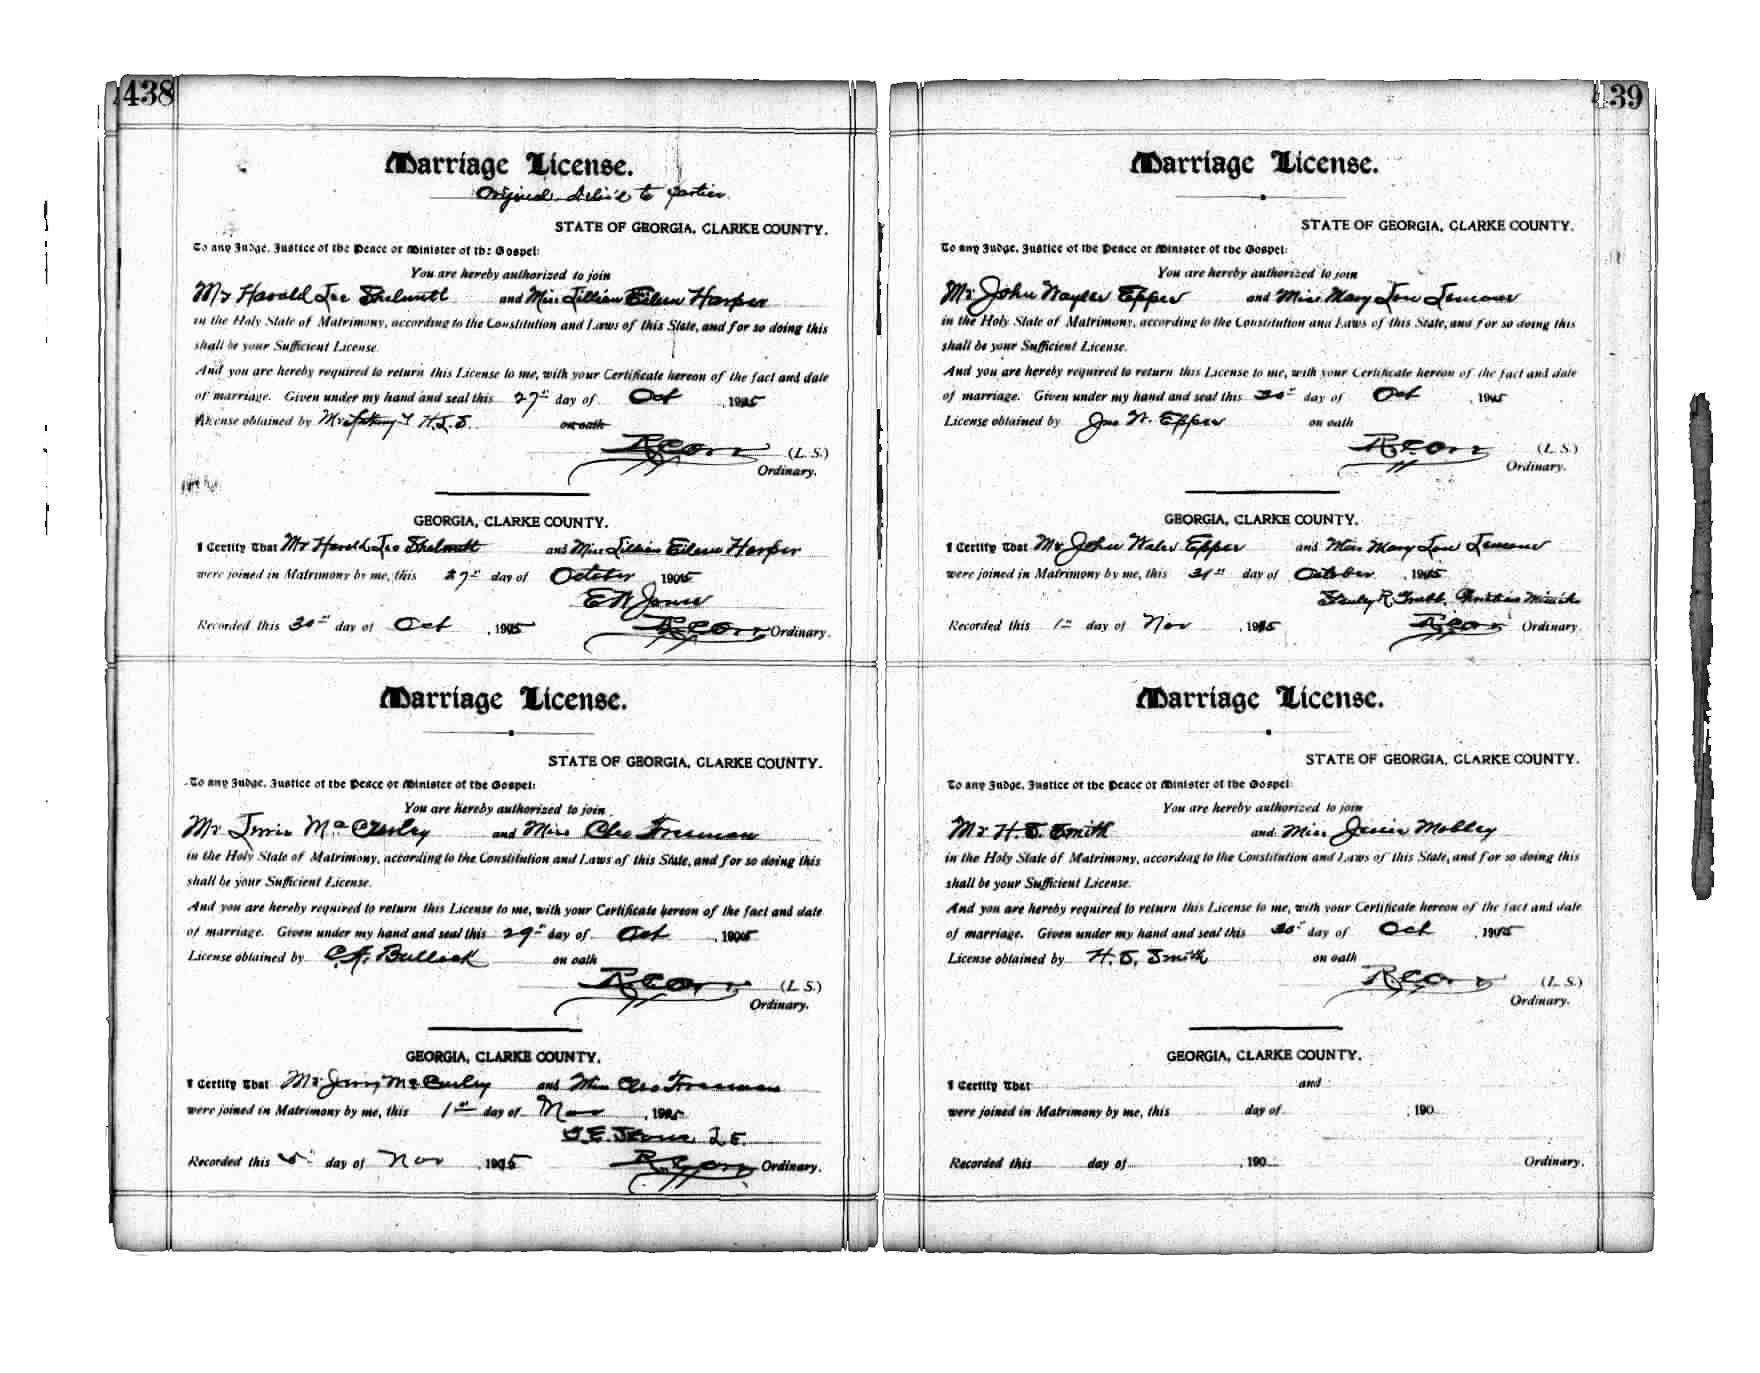 438
Marriage License.
Original deliv'd to parties.
STATE OF GEORGIA, CLARKE COUNTY.
To any Judge, Justice of the Peace or Minister of the Gospel:
You are hereby authorized to join
Mr Harold Lee and Miss Lillian Eileen Harper
in the Holy State of Matrimony, according to the Constitution and Laws of this State, and for so doing this
shall be your Sufficient License.
And you are hereby required to return this License to me, with your Certificate hereon of the fact and date
of marriage. Given under my hand and seal this 27" day of Oct , 1905
License obtained by H.L.S. on oath
R C Orr (L. S.)
Ordinary.
GEORGIA, CLARKE COUNTY.
I Certify That Mr Harold Lee and Miss Lillian Eileen Harper
were joined in Matrimony by me, this 27" day of October 1905
E W Jones
Recorded this 30" day of Oct , 1905 R C Orr Ordinary.
Marriage License.
STATE OF GEORGIA, CLARKE COUNTY.
To any Judge, Justice of the Peace or Minister of the Gospel:
You are hereby authorized to join
Mr and Miss Cleo Freeman
in the Holy State of Matrimony, according to the Constitution and Laws of this State, and for so doing this
shall be your Sufficient License.
And you are hereby required to return this License to me, with your Certificate hereon of the fact and date
of marriage. Given under my hand and seal this 29" day of Oct , 1905
License obtained by on oath
R C Orr (L. S.)
Ordinary.
GEORGIA, CLARKE COUNTY.
I Certify That Mr and Miss Cleo Freeman
were joined in Matrimony by me, this 1st day of Nov , 1905
Recorded this 5" day of Nov , 1905 R C Orr Ordinary.
439
Marriage License.
STATE OF GEORGIA, CLARKE COUNTY.
To any Judge, Justice of the Peace or Minister of the Gospel:
You are hereby authorized to join
Mr John Epper and Miss Mary Lou
in the Holy State of Matrimony, according to the Constitution and Laws of this State, and for so doing this
shall be your Sufficient License.
And you are hereby required to return this License to me, with your Certificate hereon of the fact and date
of marriage. Given under my hand and seal this 30" day of Oct , 1905
License obtained by Jno W. Epper on oath
R C Orr (L. S.)
Ordinary.
GEORGIA, CLARKE COUNTY.
I Certify That Mr John Epper and Miss Mary Lou
were joined in Matrimony by me, this 31st day of October , 1905
Stanley R.
Recorded this 1st day of Nov , 1905 R C Orr Ordinary.
Marriage License.
STATE OF GEORGIA, CLARKE COUNTY.
To any Judge, Justice of the Peace or Minister of the Gospel:
You are hereby authorized to join
Mr H. T. Smith and Miss Mobley
in the Holy State of Matrimony, according to the Constitution and Laws of this State, and for so doing this
shall be your Sufficient License.
And you are hereby required to return this License to me, with your Certificate hereon of the fact and date
of marriage. Given under my hand and seal this 30" day of Oct , 1905
License obtained by H. T. Smith on oath
R C Orr (L. S.)
Ordinary.
GEORGIA, CLARKE COUNTY.
I Certify That and
were joined in Matrimony by me, this day of , 190
Recorded this day of , 190 Ordinary.